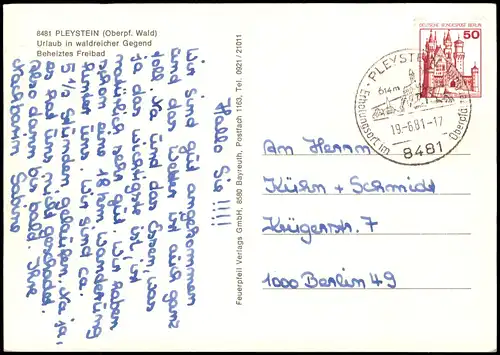 8481 PLEYSTEIN (Oberpf. Wald)
Urlaub in waldreicher Gegend
Beheiztes Freibad
Hallo Sie!!!!!
Wir sind gut angekommen
und das Wetter ist auch ganz
toll. Na und das Essen, was
das wichtigste ist, ist
natürlich sehr gut. Wir haben
schon eine 18 km Wanderung
hinter uns. Wir sind ca.
5 1/2 Stunden gelaufen. Na ja,
es hat uns nicht geschadet.
Also dann bis bald. Ihre
Nachbarin Sabine
Feuerpfeil Verlags GmbH, 8580 Bayreuth, Postfach 1163, Tel. 0921/21011
DEUTSCHE BUNDESPOST BERLIN
50
PLEYSTEIN
614m
19-6.81-17
Erholungsort im Oberpf.
8481
An Herrn
Kühn + Schmidt
Krügerstr. 7
1000 Berlin 49